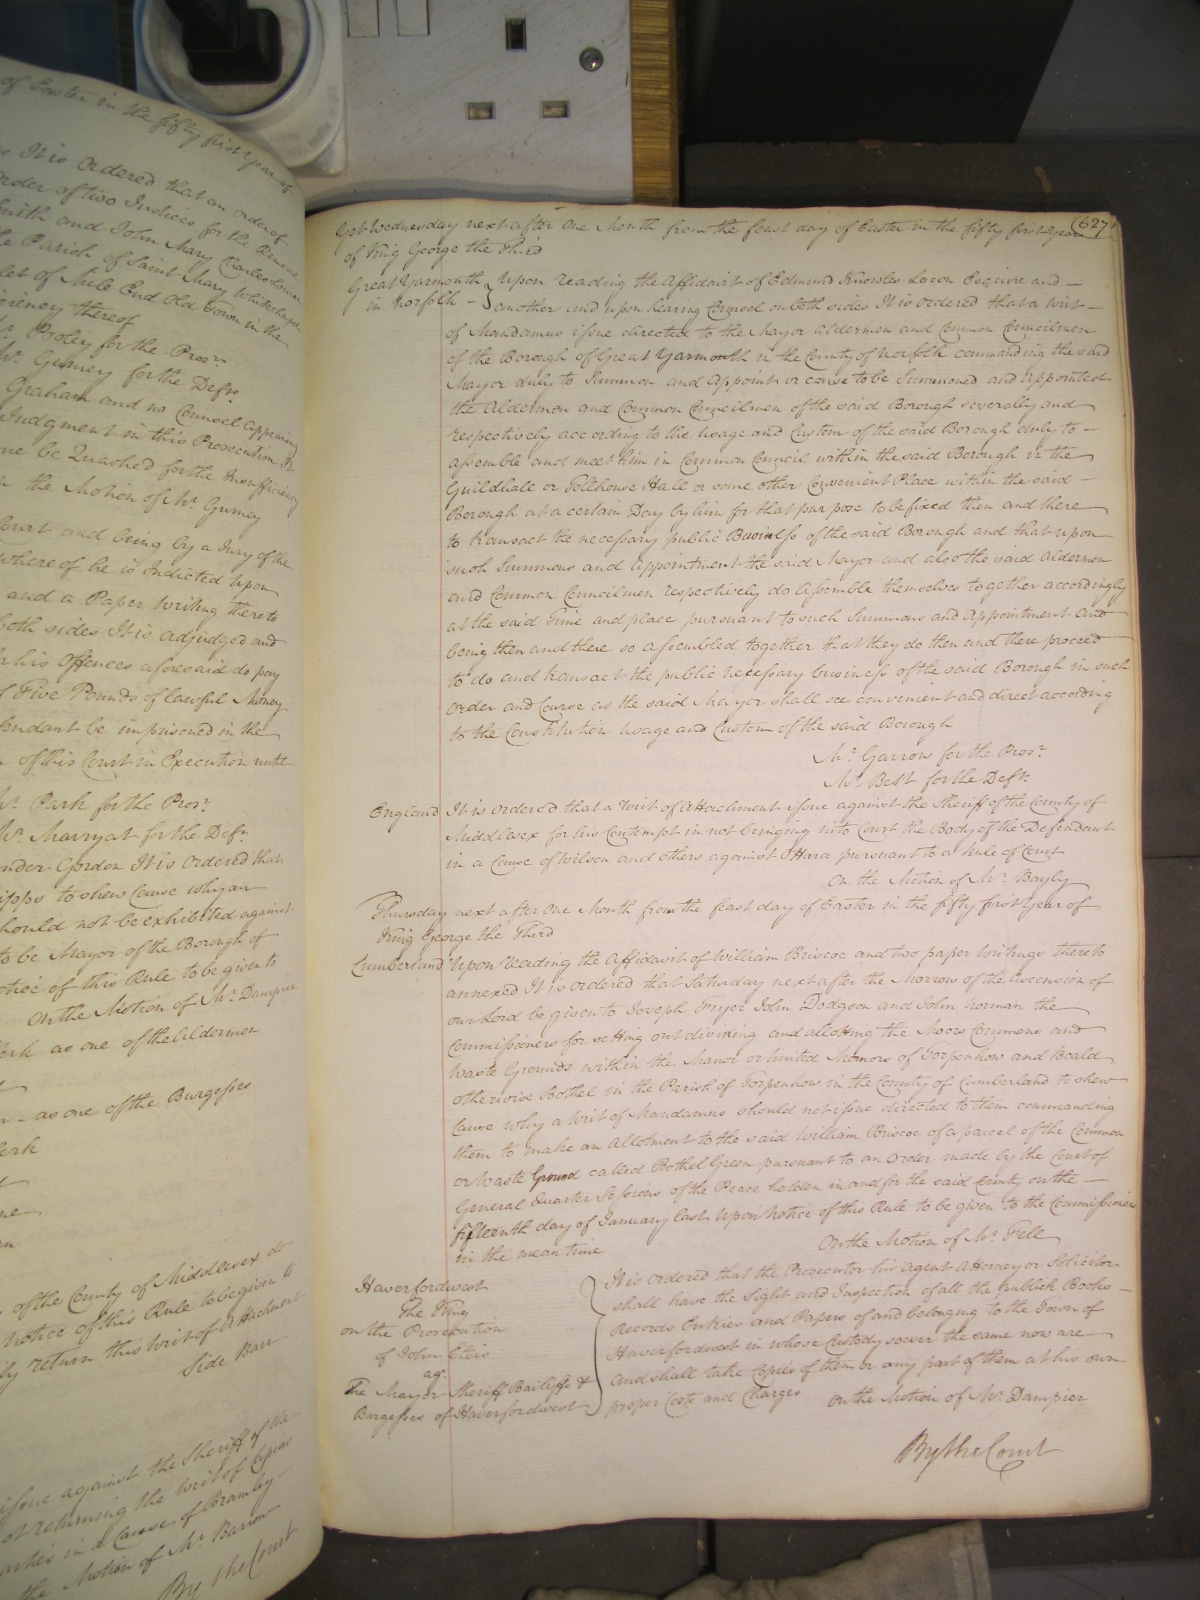 of Easter in the fifty first year of
It is ordered that an order of
order of two Justices for the Remove
Smith and John Mary Charles
the Parish of Saint Mary Whitechapel
let of Mile End Old Town in the
iciency thereof
Mr. Pooley for the Prosr.
Mr. Gurney for the Deft.
Graham and no Counsel appearing
Judgment in this Prosecution It
me be Quashed for the Insufficiency
the Motion of Mr. Gurney
Court and being by a Jury of the
whereof he is Indicted upon
and a Paper Writing thereto
both sides It is adjudged and
for his Offences aforesaid do pay
of Five Pounds of lawful Money
fendant be imprisoned in the
of this Court in Execution until
Mr. Park for the Prosr.
Mr. Marryat for the Deft.
nder Gordon It is ordered that
to shew Cause why an
should not be exhibited against
to be Mayor of the Borough of
notice of this Rule to be given to
On the Motion of Mr. Dampier
Clerk as one of the Aldermen
- as one of the Burgesses
erk
of the County of Middlesex do
notice of this Rule to be given to
ly return this Writ of Attachment
Side Barr
issue against the Sheriff of the
not returning the Writ of Capias
arties in a Cause of Bramley
the Motion of Mr. Barrow
By the Court
627
Yet Wednesday next after One Month from the feast day of Easter in the fifty first Year
of King George the Third
Great Yarmouth } Upon reading the Affidavit of Edmund Knowles Lacon Esquire and -
in Norfolk - } another and upon hearing Counsel on both sides It is ordered that a Writ -
of Mandamus issue directed to the Mayor Aldermen and Common Councilmen
of the Borough of Great Yarmouth in the County of Norfolk commanding the said
Mayor duly to Summon and Appoint or cause to be Summoned and Appointed
the Aldermen and Common Councilmen of the said Borough severally and
respectively according to the Usage and Custom of the said Borough duly to -
assemble and meet him in Common Council within the said Borough in the
Guildhall or Tollhouse Hall or some other Convenient Place within the said -
Borough at a certain Day by him for that purpose to be fixed then and there
to transact the necessary public Business of the said Borough and that upon
such Summons and Appointment the said Mayor and also the said Aldermen
and Common Councilmen respectively do Assemble themselves together accordingly
at the said Time and place pursuant to such Summons and Appointment and
being then and there so assembled together that they do then and there proceed
to do and transact the public necessary business of the said Borough in such
Order and Curse as the said Mayor shall see convenient and direct according
to the Constitution Usage and Custom of the said Borough
Mr. Garrow for the Prosr.
Mr. Best for the Deft.
England It is ordered that a Writ of Attachment issue against the Sheriff of the County of
Middlesex for his Contempt in not bringing into Court the Body of the Defendant
in a Cause of Wilson and others against O'Hara pursuant to a Rule of Court
On the Motion of Mr. Bayly
Thursday next after One Month from the feast day of Easter in the fifty first Year of
King George the Third
Cumberland Upon reading the Affidavit of William Briscoe and two paper Writings thereto
annexed It is ordered that Saturday next after the Morrow of the Ascension of
our Lord be given to Joseph Fryer John Dodgson and John Norman the
Commissioners for setting out dividing and allotting the Moors Commons and
Waste Grounds within the Manor or united Manors of Torpenhow and Boald
otherwise Bothel in the Parish of Torpenhow in the County of Cumberland to shew
Cause why a Writ of Mandamus should not issue directed to them commanding
them to make an Allotment to the said William Briscoe of a parcel of the Common
or Waste Ground called Bothel Green pursuant to an Order made by the Court of
General Quarter Sessions of the Peace holden in and for the said County on the -
fifteenth day of January last Upon Notice of this Rule to be given to the Commissioners
in the mean time
On the Motion of Mr. Fell
Haverfordwest
The King
on the Prosecution
of John Ellis
agt.
The Mayor Sheriff Bailiffs &
Burgesses of Haverfordwest
It is ordered that the Prosecutor his agent Attorney or Solicitor
shall have the Sight and Inspection of all the publick Books -
Records Entries and Papers of and belonging to the Town of
Haverfordwest in whose Custody soever the same now are
and shall take Copies of them or any part of them at his own
proper Costs and Charges
On the Motion of Mr. Dampier
By the Court